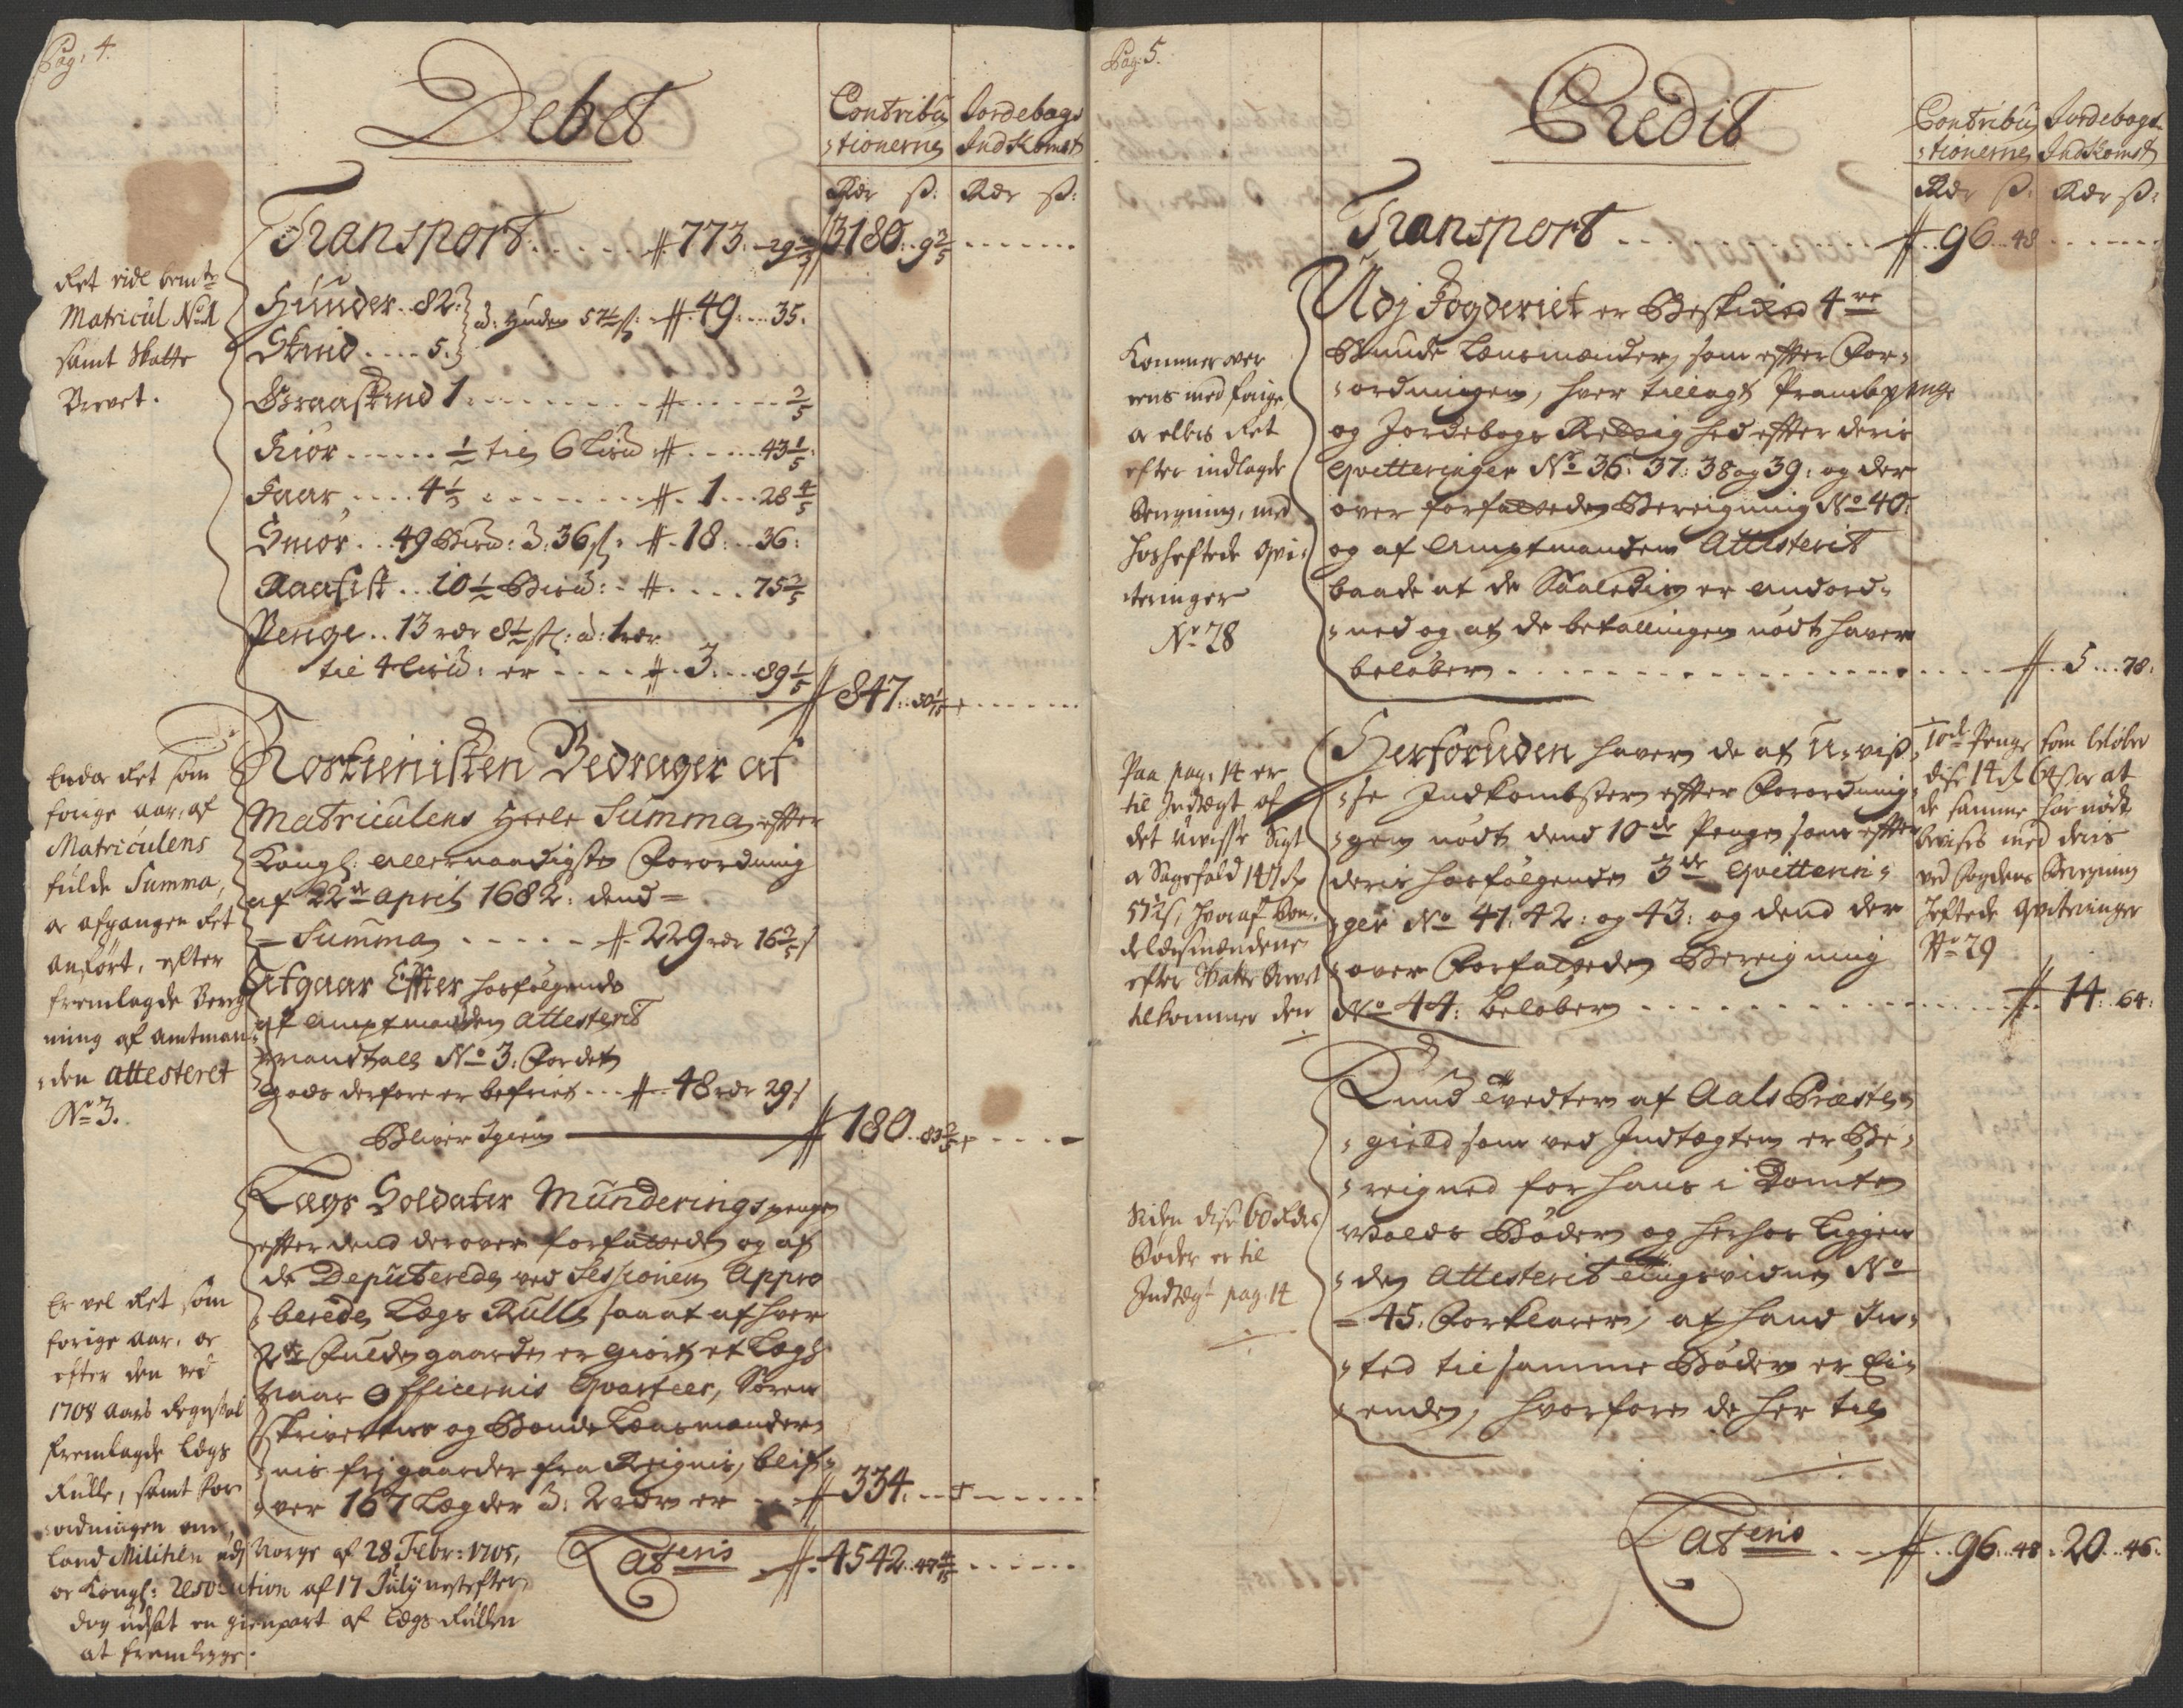 Pag: 4.
Debet
Contribu Jordebogs
:tionerne Indkomst
Rdr ß: Rdr ß:
Transport. . . . . # 773. 29 3180. 9 2/5
Det vide bemte
Matricul No 1
samt Skatte
Brevet.
Hunder. 82.
Skind . . . . 5.
a: Huden 57½ ß: # 49. . . 35.
Graaskind 1. . . . . . . # . . . . 2/5
Kiör . . . . . ½ til 6 Lispd # . . . . 43 1/5
Faar . . . . 4½ . . . . . # 1 . . . 28 4/5
Smör . . . 49 Bispd: a: 36 ß. # 18: . . 36:
Raafisk . . 10½ Bispd: - # . . . . 75 2/5
Penge . . 13 rdr 8½ ß: a: 1 rdr
til 4 Lispd: er . . . . # 3: . . 89 1/5 # 847. .
Endes det som
forige aar, af
Matriculens
fulde Summa,
og afgangen det
anfört, efter
fremlagde Bereg
ning af amtman:
:den attesteret
No 3.
Rostienisten Bedrager af
Matriculens Heele Summa, effter
Kongl: allernaadigste Forordning
af 22de April 1682: dend =
= Summa . . . . . # 229 rdr 16 2/5 ß
Afgaar Effter hosfølgende
af Amptmanden attesterit
Mandtall No 3: For det
Gods derfore er befriet . . . # 48 rdr 29 ß
Bliver Igien # 180. . 83 2/5
Er vel det som
forige aar, og
efter den ved
1708 aars Regnskab
fremlagde Lægs
Rulle, samt for
:ordningen om
Land Militien udj Norge af 28 Febr: 1705,
og Kongl: Resolution af 17 July nestefter,
dog udsat en gienpart af Lægs Rullen
at fremlegge.
Lægs Soldater Munderings penge
effter dend derover forfattede og af
de Deputerede ved Sessionen Appro
:berede Lægs Rulle saa at af hver
2de Fulde gaarde er giort et Lægh
Naar Officernis Qvarteer, Soren
skriverens og Bonde Lænsmænder,
:nis frj gaarder fra Reignis, blif:
:ver 167 Lægder a: 2 rdr er . . . # 334. . .
Lateris # 4542. .
Pag: 5.
Credit
Contribu Jordebogs
:tionerne Indkomst
Rdr ß: Rdr ß:
Transport . . . . . . . . . . # 96. . 48 . . . . .
Kommer over
eens med forige,
og elles det
efter indlagde
beregning, med
hoshefftede qvi:
:teringer
No 28
Udj Fogderiet er Beskicked 4re
Bunde Lensmænder som effter For:
:ordningen, hver tillagt frambpenge
og Jordebogs Rettighed effter deris
Qvitteringer No 36: 37: 38 og 39: og der
over forfattede Bereigning No 40:
og af Amptmanden Attesterit
baade at de Saaledis er anord:
:ned og at de betallingen nödt haver
beløber . . . . . . . . . . . . # . 5 . . . 78:
Paa pag: 14 er
til Indtegt af
det Uvisse Sigt
og Sagefald 147 rdr
57½ ß, hvoraf Bon:
delensmendene
efter Skatte Brevet
tilkommer den
Herforuden haver de af U:viss
:se Indkombster effter Forordnin:
:gen nödt dend 10de Penge som effter
deris hosfølgende 3de Qvitterin:
:ger No 41: 42: og 43: og dend der
:over Forfattede Bereigning
No 44: Beløber . . . . . . . . . # 14. . 64:
10de Penge som beløber
dise 14 rdr 64 ß og at
de samme har nödt
bevises med deris
ved fogdens Beregning
hefftede qvitteringer
No 29
Siden dise 60 rdrs
Bøder er til
Indtegt pag: 14
Knud Evedten af Aals Præste:
:gield som ved Indtægten er Be:
:reigned for hans i Dömte
Volds Bøder og herhos Liggen
:de Attesterit tingsvidne No
= 45. Forklarer, at hand In:
:ted til samme Bøder er Ei:
:ende, hvorfore de her til
Lateris . . . # 96. . 48. 20. . 46: